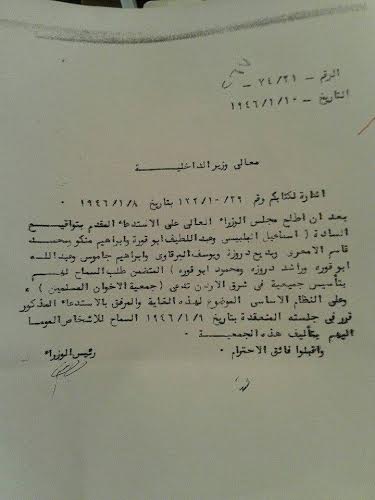 الرقم - ٧٤/٢١ -
التاريخ - ١٩٤٦/٢/١٠
معالي وزير الداخلية
اشارة لكتابكم رقم ١٢٢/١٠/٢٩ بتاريخ ١٩٤٦/١/٨ .
بعد ان اطلع مجلس الوزراء العالي على الاستدعاء المقدم بتواقيع
السادة ( اسماعيل البلبيسي وعبد اللطيف ابو قورة وابراهيم منكو ومحمد
قاسم الامعري وبديع دروزة ويوسف البرقاوي وابراهيم جاموس وعبد الله
ابو قوره وراشد دروزه ومحمود ابو قوره ) المتضمن طلب السماح لهم
بتأسيس جمعية في شرق الاردن تدعى ( جمعية الاخوان المسلمين ) ،
وعلى النظام الاساسي الموضوع لهذه الغاية والمرفق بالاستدعاء المذكور
قرر في جلسته المنعقدة بتاريخ ١٩٤٦/١/٩ السماح للاشخاص الموما
اليهم بتأليف هذه الجمعية .
واقبلوا فائق الاحترام .
رئيس الوزراء